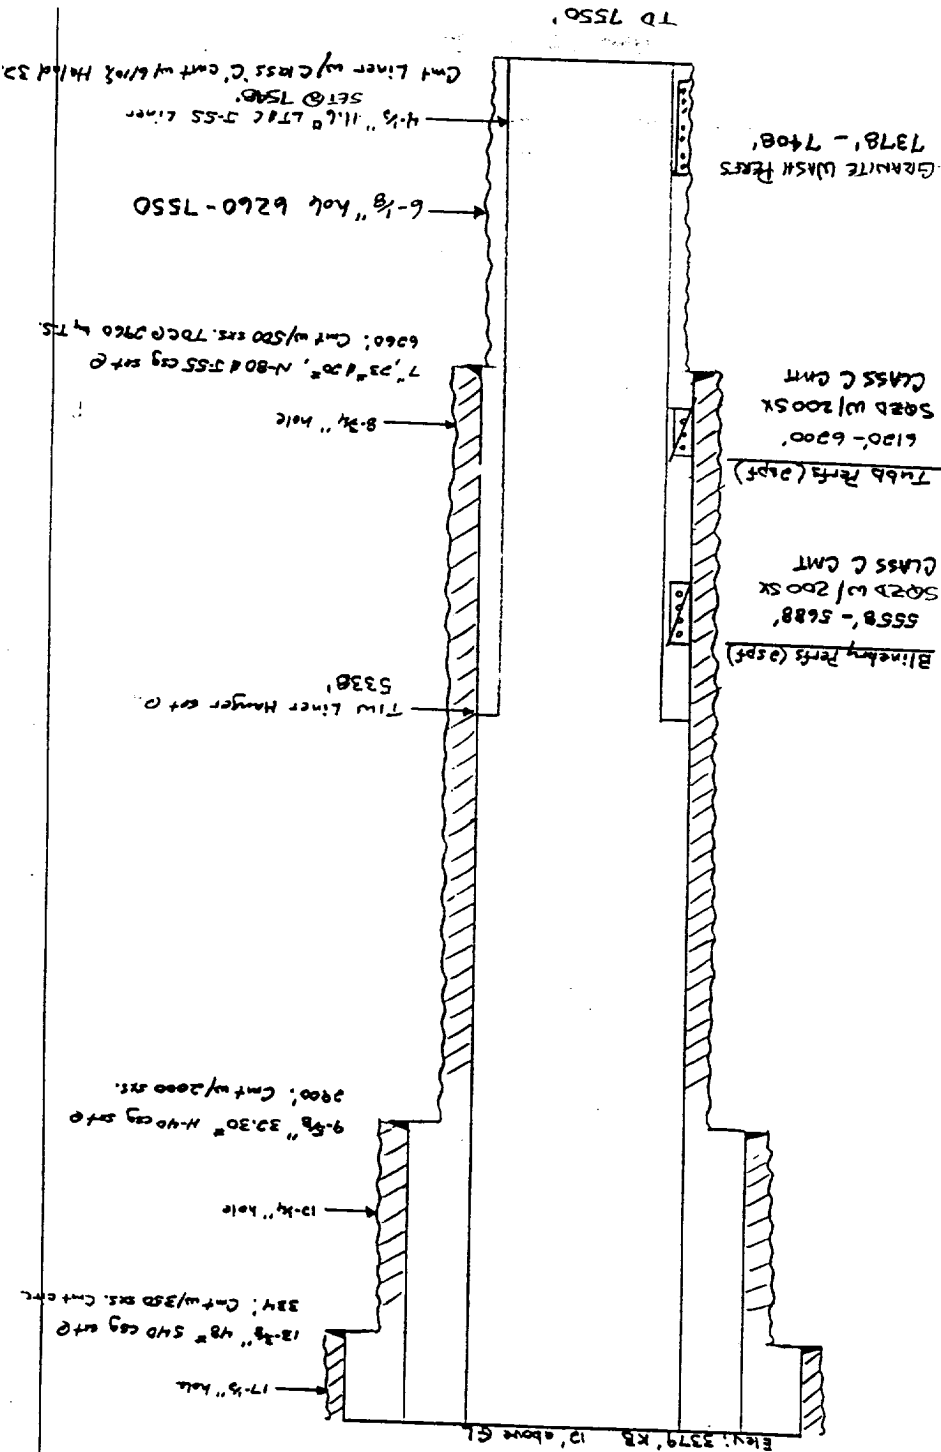 Elev: 3379' KB 12' above GL
17-1/2" hole
13-3/8" 48# csg set @
Cmt w/350 sxs. Cmt circ
12-1/4" hole
9-5/8" 32.30# H-40 csg set @
2900'. Cmt w/2000 sxs.
TIW Liner Hanger set @
5338'
Blinebry Perfs (2spf)
5558'-5688'
SQZD W/200 SX
CLASS C CMT
Tubb Perfs (2spf)
6120'-6200'
SQZD W/200 SX
CLASS C CMT
8-3/4" hole
7", 23# & 20#, N-80 & J-55 csg set @
6260'. Cmt w/500 sxs. TOC@ 2960 by T.S.
6-1/8" hole 6260-7550
GRANITE WASH PERFS
7378' - 7408'
4-1/2" 11.6# LT&C J-55 Liner
SET @ 7548'
Cmt Liner w/ Class 'C' cmt w/ 6/10% Halad 32.
TD 7550'